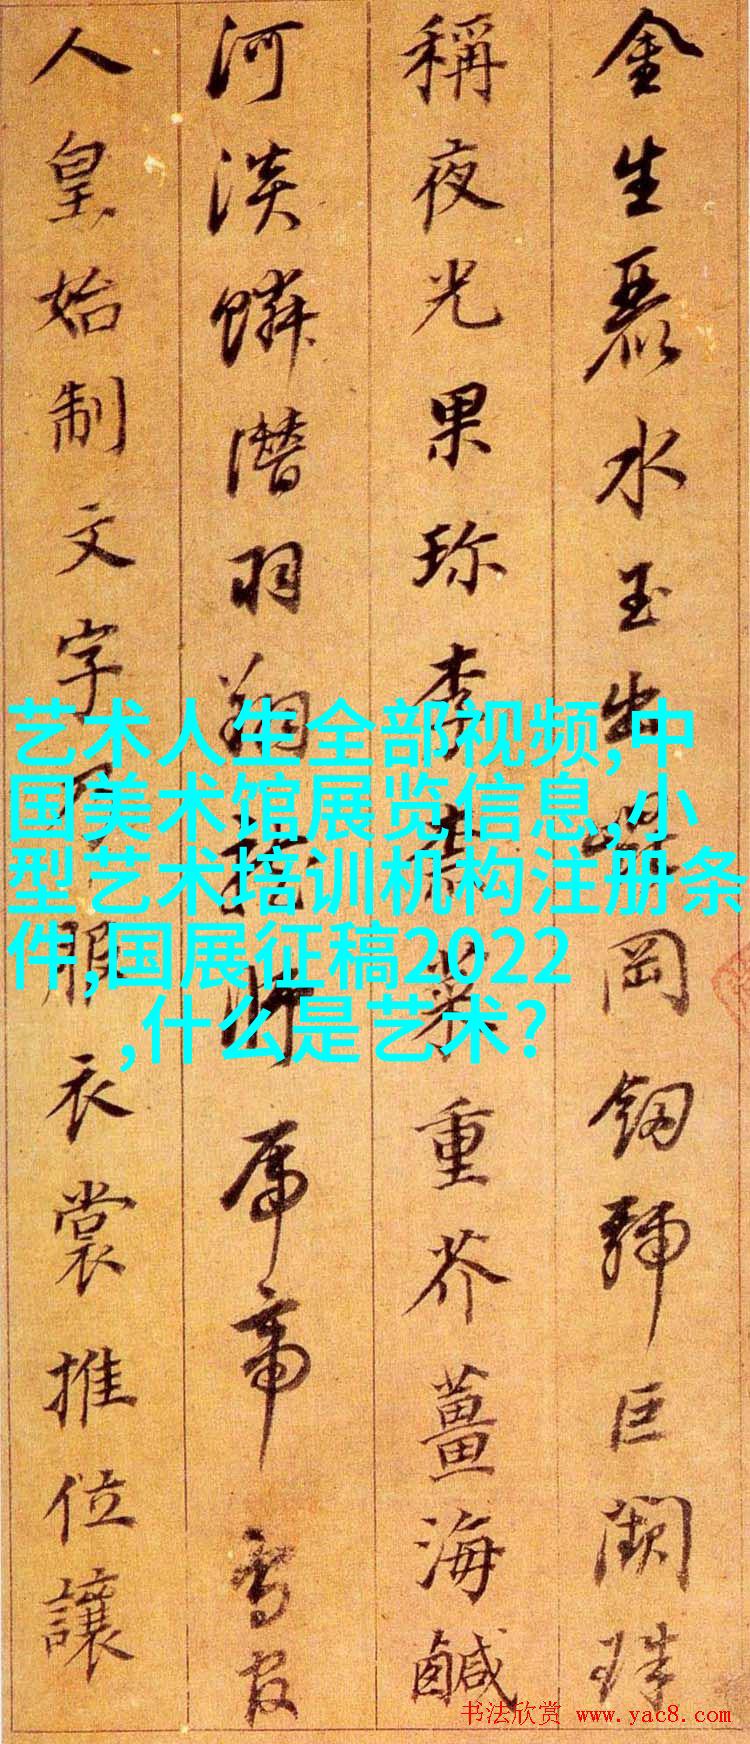 金生麗水玉出崑岡劒號巨闕珠
稱夜光果珍李柰菜重芥薑海鹹
河淡鱗潛羽翔龍師帝鳥官
人皇始制文字乃服衣裳推位讓
艺术人生全部视频,中
国美术馆展览信息,小
型艺术培训机构注册条
件,国展征稿2022
,什么是艺术?
书法欣赏 www.yac8.com